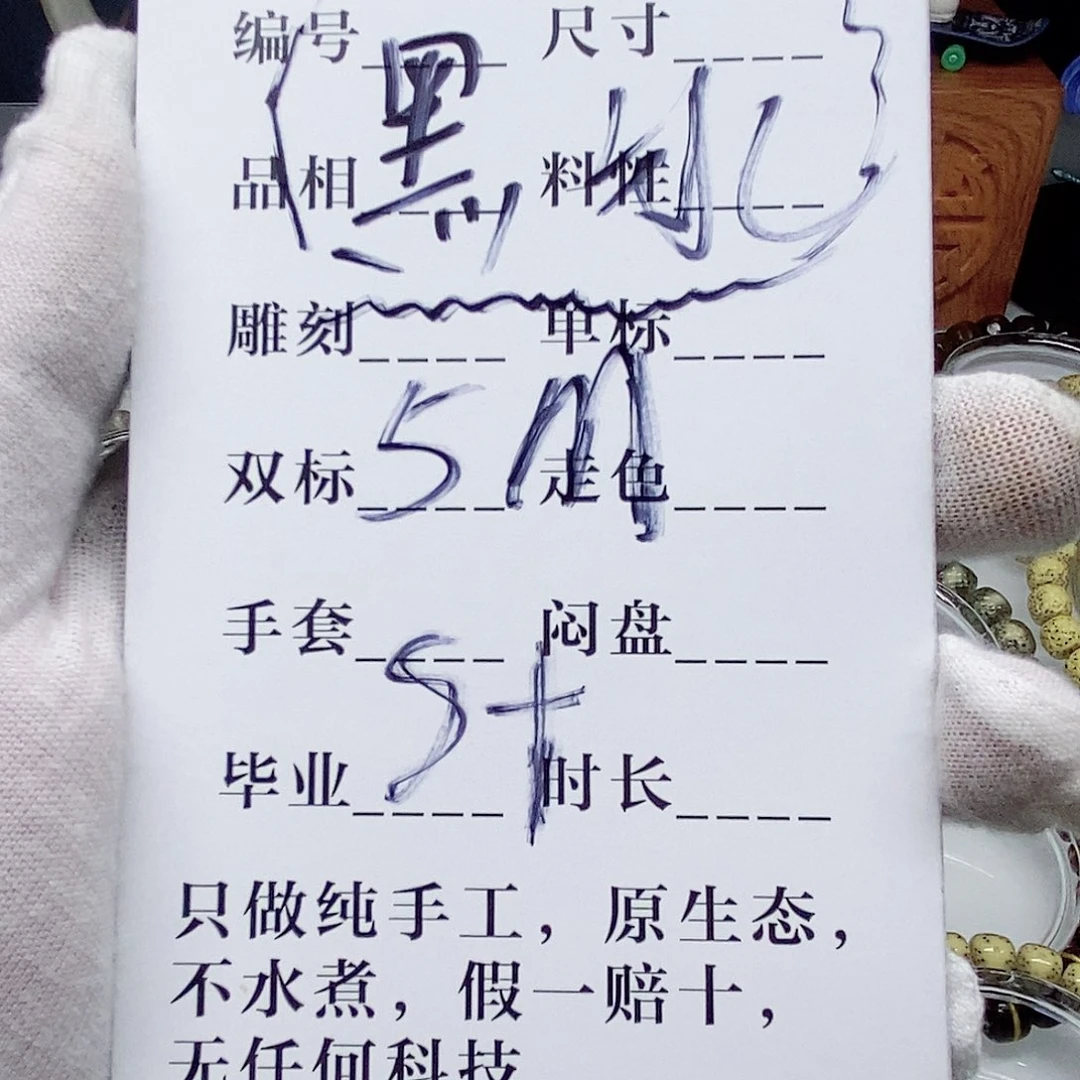 编号____ 尺寸____
黑
品相____ 料性____
雕刻____ 单标____
5M
双标____ 走色____
手套____ 闷盘____
S+
毕业____ 时长____
只做纯手工，原生态，
不水煮，假一赔十，
无任何科技